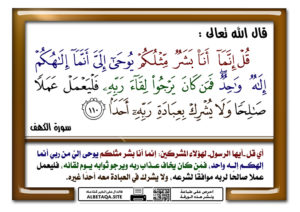 قال الله تعالى :
قُلْ إِنَّمَا أَنَا۠ بَشَرٌ مِّثْلُكُمْ يُوحَىٰٓ إِلَىَّ أَنَّمَآ إِلَٰهُكُمْ
إِلَٰهٌ وَٰحِدٌ ۖ فَمَن كَانَ يَرْجُوا۟ لِقَآءَ رَبِّهِۦ فَلْيَعْمَلْ عَمَلًا
صَٰلِحًا وَلَا يُشْرِكْ بِعِبَادَةِ رَبِّهِۦٓ أَحَدًۢا ﴿١١٠﴾
سورة الكهف
أي قل -أيها الرسول- لهؤلاء المشركين: إنما أنا بشر مثلكم يوحى إليّ من ربي أنما
إلهكم إله واحد، فمن كان يخاف عذاب ربه ويرجو ثوابه يوم لقائه، فليعمل
عملا صالحا لربه موافقا لشرعه، ولا يشرك في العبادة معه أحدا غيره.
ALBETAQA.SITE